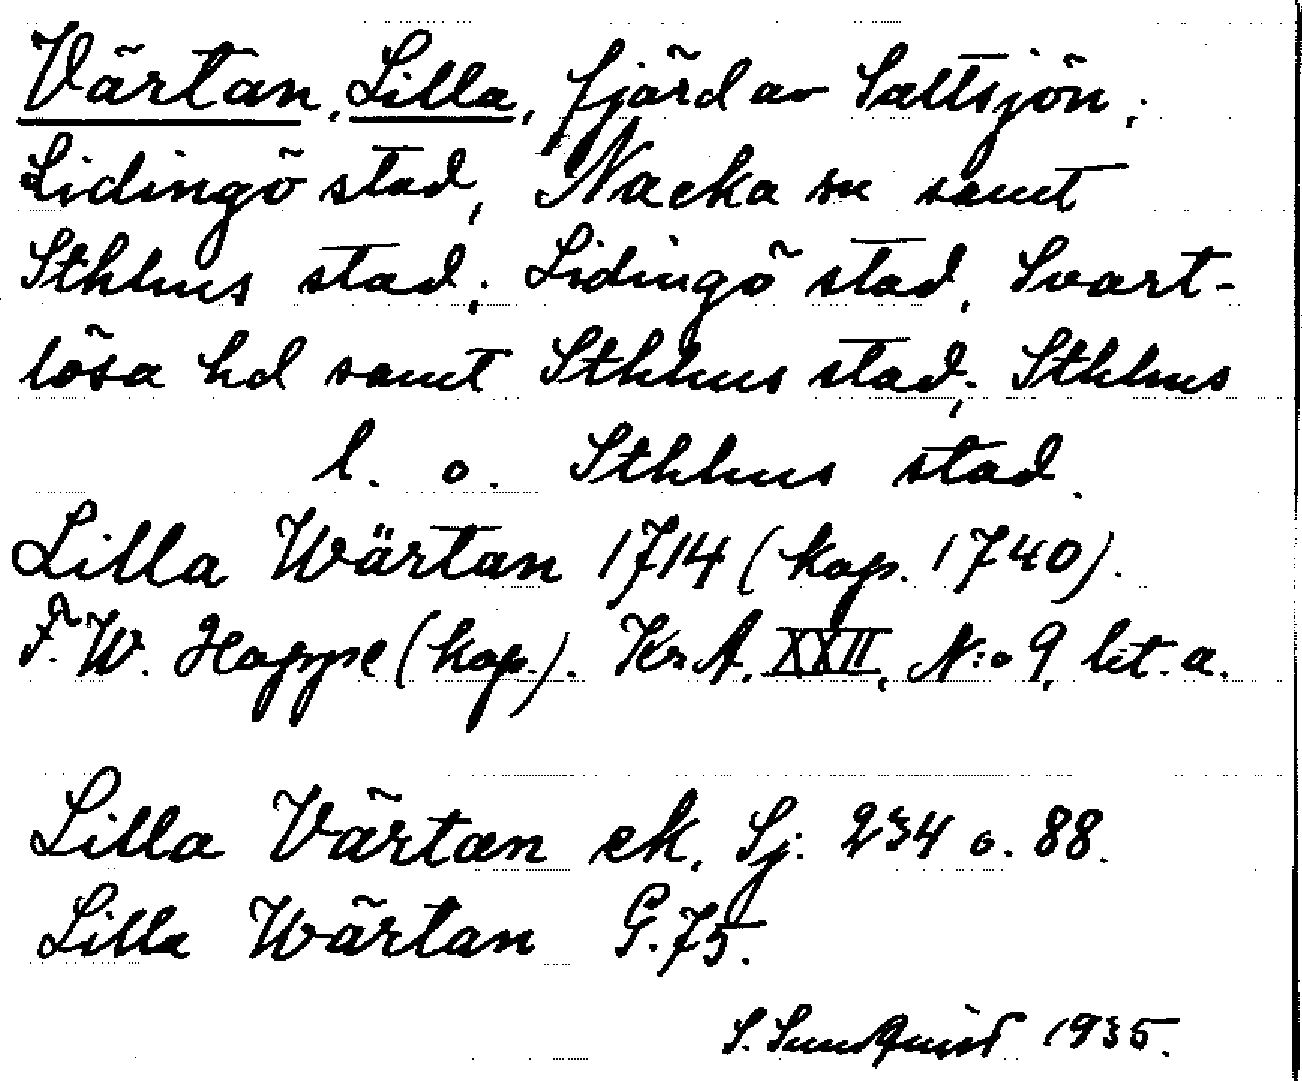 Värtan, Lilla, fjärd av Saltsjön;
Lidingö stad, Nacka sn samt
Sthlms stad; Lidingö stad, Svart-
lösa hd samt Sthlms stad; Sthlms
l. o. Sthlms stad.
Lilla Wärtan 1714 (kop. 1740).
F. W. Hoppe (kop.). Kr A. XXII, N:o 9, lit. a.
Lilla Värtan ek, Sj: 234 o. 88.
Lilla Wärtan G. 75.
S. Sundquist 1935.